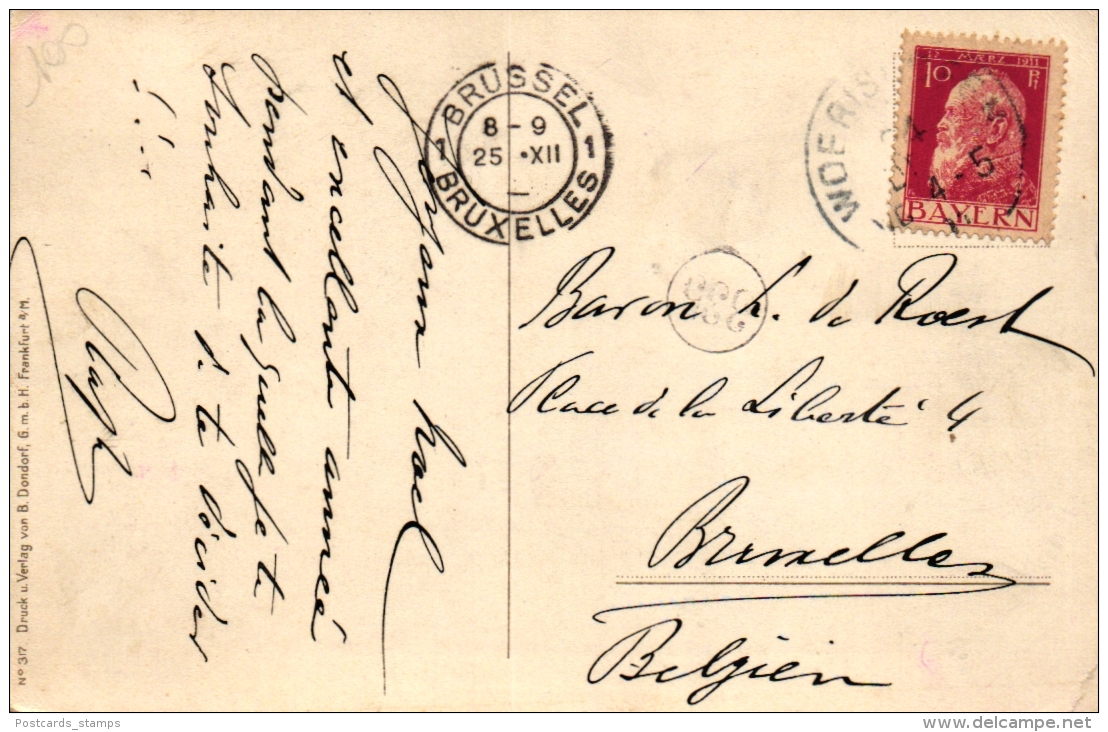 100
Joyeux Noel
et excellente année
pendant laquelle je te
souhaite de te décider
!...
BRUSSEL
1 8-9 1
25 •XII
BRUXELLES
WOERIS
4-5
12 MÆRZ 1911
10 Pf
BAYERN
Baron L. de Roest
Place de la Liberté 4
Bruxelles
Belgien
Nº 317 Druck u. Verlag von B. Dondorf, G.m.b.H. Frankfurt a/M.
Postcards_stamps
www.delcampe.net